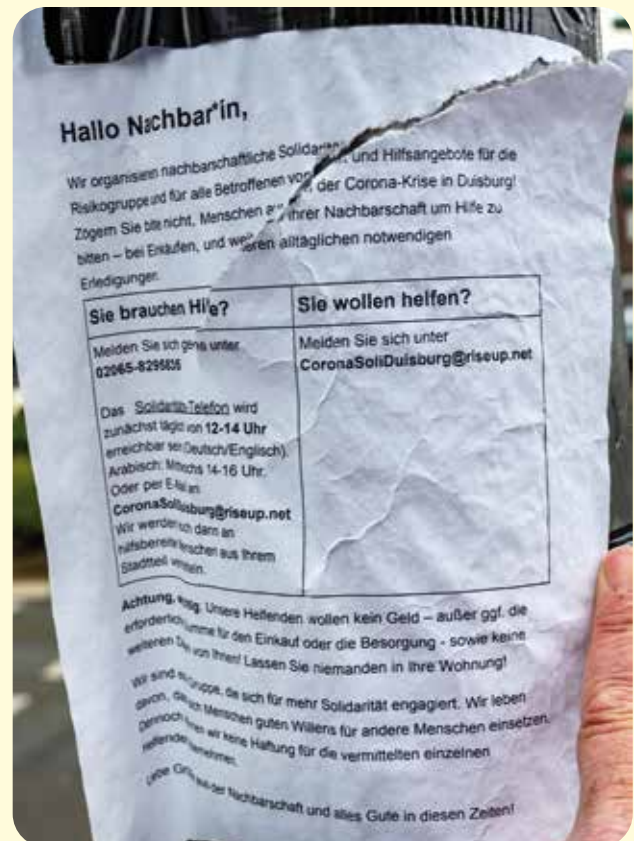 Hallo Nachbar*in,
Wir organisieren nachbarschaftliche und Hilfsangebote für die
Risikogruppe und für alle Betroffenen der Corona-Krise in Duisburg!
Zögern Sie bitte nicht, Menschen ihrer Nachbarschaft um Hilfe zu
bitten – bei Einkäufen, und alltäglichen notwendigen
Erledigungen.
Sie brauchen Hilfe?
Melden Sie sich gerne unter

Das Solidaritäts-Telefon wird
zunächst täglich von 12-14 Uhr
erreichbar sein Deutsch/Englisch).
Arabisch: Mittwochs 14-16 Uhr.
Oder per E-Mail an
Wir werden dann an
aus Ihrem
Stadtteil
Sie wollen helfen?
Melden Sie sich unter
CoronaSoliDuisburg@riseup.net
Achtung, Unsere Helfenden wollen kein Geld – außer ggf. die
für den Einkauf oder die Besorgung - sowie keine
weiteren von Ihnen! Lassen Sie niemanden in Ihre Wohnung!
Wir sind die sich für mehr Solidarität engagiert. Wir leben
davon, Menschen guten Willens für andere Menschen einsetzen.
Dennoch wir keine Haftung für die vermittelten einzelnen
Liebe der Nachbarschaft und alles Gute in diesen Zeiten!